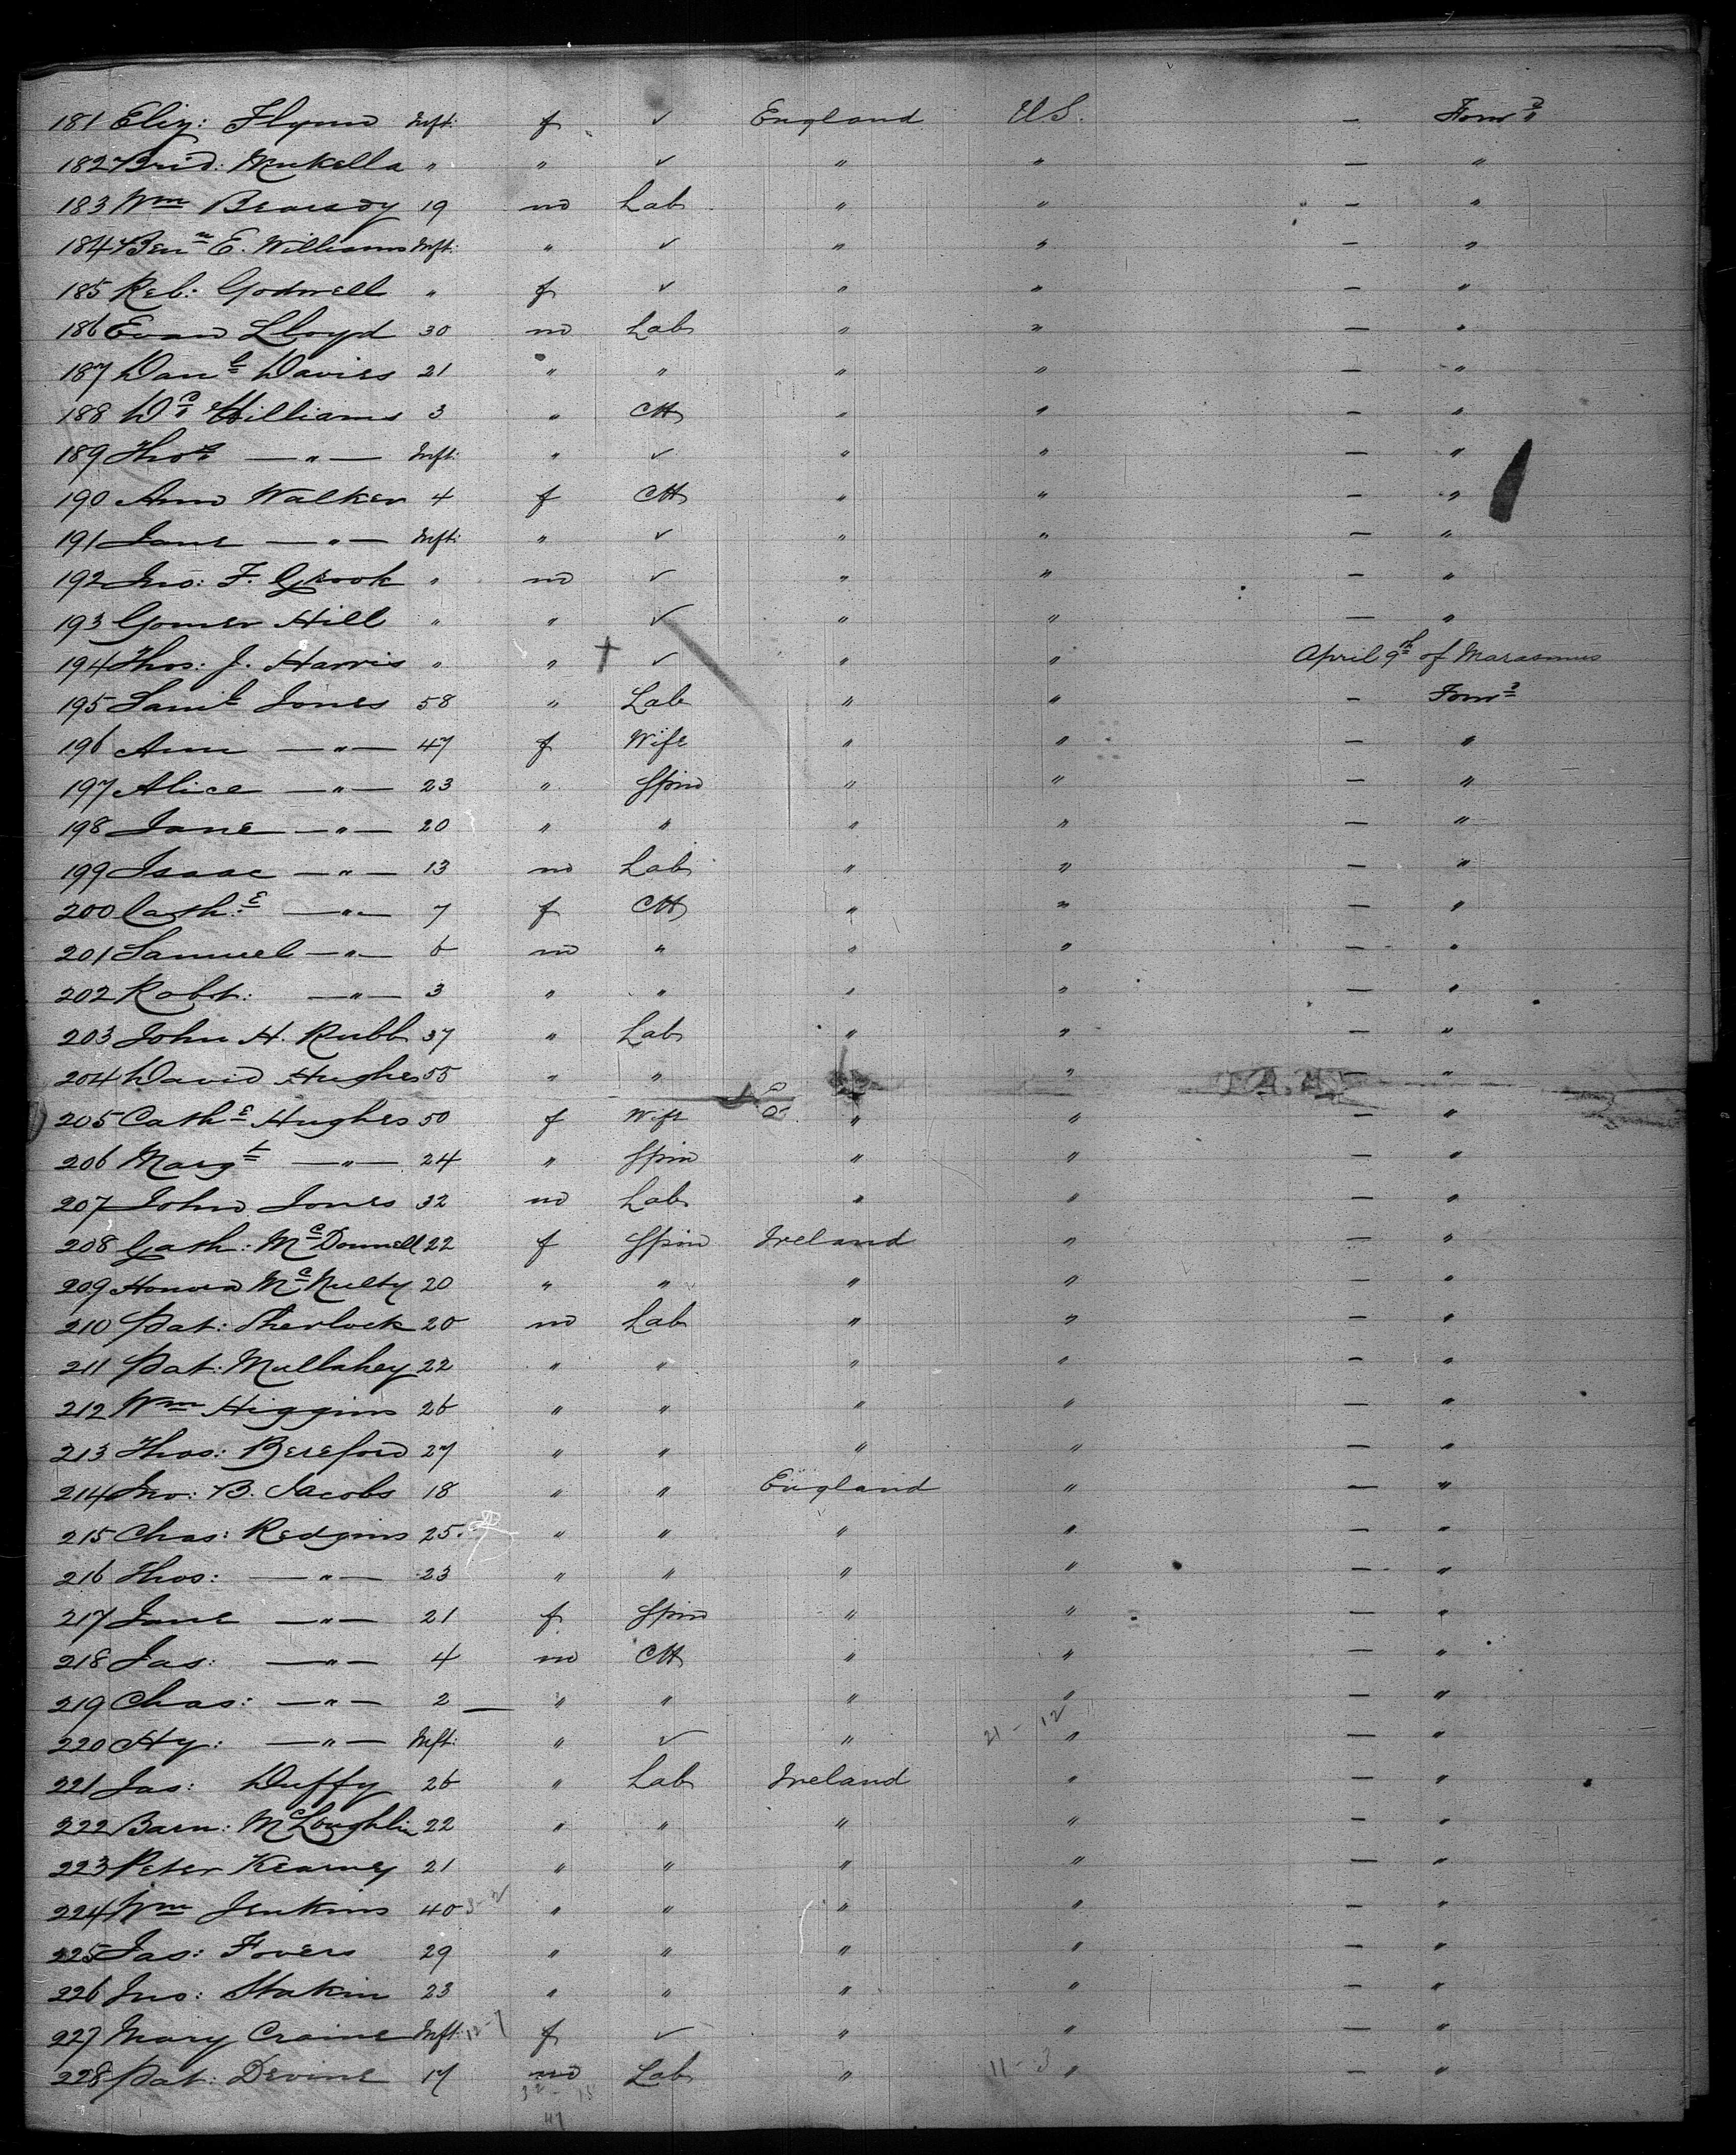 181 Eliz: Flynn Inft: f ✓ England U.S. — Forwd
182 Brid: Mukella " " ✓ " " — "
183 Wm Bearsdy 19 m Lab " " — "
184 Benn E. Williams Inft: " ✓ " " — "
185 Reb: Godwell " f ✓ " " — "
186 Evan Lloyd 30 m Lab " " — "
187 Danl Davies 21 " " " " — "
188 Wm Williams 3 " Ch " " — "
189 Thos — " — Inft: " ✓ " " — "
190 Ann Walker 4 f Ch " " — "
191 Jane — " — Inft: " ✓ " " — "
192 Jno: F. Grook " m ✓ " " — "
193 Gomer Hill " " ✓ " " — "
194 Thos: J. Harris " " + ✓ " " April 9th of Marasmus
195 Saml Jones 58 " Lab " " — Forwd
196 Ann — " — 47 f Wife " " — "
197 Alice — " — 23 " Spin " " — "
198 Jane — " — 20 " " " " — "
199 Isaac — " — 13 m Lab " " — "
200 Cath:e — " — 7 f Ch " " — "
201 Samuel — " — 6 m " " " — "
202 Robt: — " — 3 " " " " — "
203 John H. Rubb 37 " Lab " " — "
204 David Hughes 55 " " " " — "
205 Cathe Hughes 50 f Wife " " — "
206 Margt — " — 24 " Spin " " — "
207 John Jones 32 m Lab " " — "
208 Cath: McDonnell 22 f Spin Ireland " — "
209 Honora McNulty 20 " " " " — "
210 Pat: Sherlock 20 m Lab " " — "
211 Pat: Mullahey 22 " " " " — "
212 Wm Higgins 26 " " " " — "
213 Thos: Bereford 27 " " " " — "
214 Jno: B. Jacobs 18 " " England " — "
215 Chas: Redgins 25 " " " " — "
216 Thos: — " — 23 " " " " — "
217 Jane — " — 21 f Spin " " — "
218 Jas: — " — 4 m Ch " " — "
219 Chas: — " — 2 — " " " " — "
220 Hy: — " — Inft: " ✓ " 21 - 12 " — "
221 Jas: Duffy 26 " Lab Ireland " — "
222 Barn: McLoughlin 22 " " " " — "
223 Peter Kearney 21 " " " " — "
224 Wm Jenkins 40 3-2 " " " " — "
225 Jas: Fovers 29 " " " " — "
226 Jno: Stakin 23 " " " " — "
227 Mary Craine Inft: 12-7 f ✓ " " — "
228 Pat: Devine 17 m Lab " 11 - 3 " — "
32 - 15
47